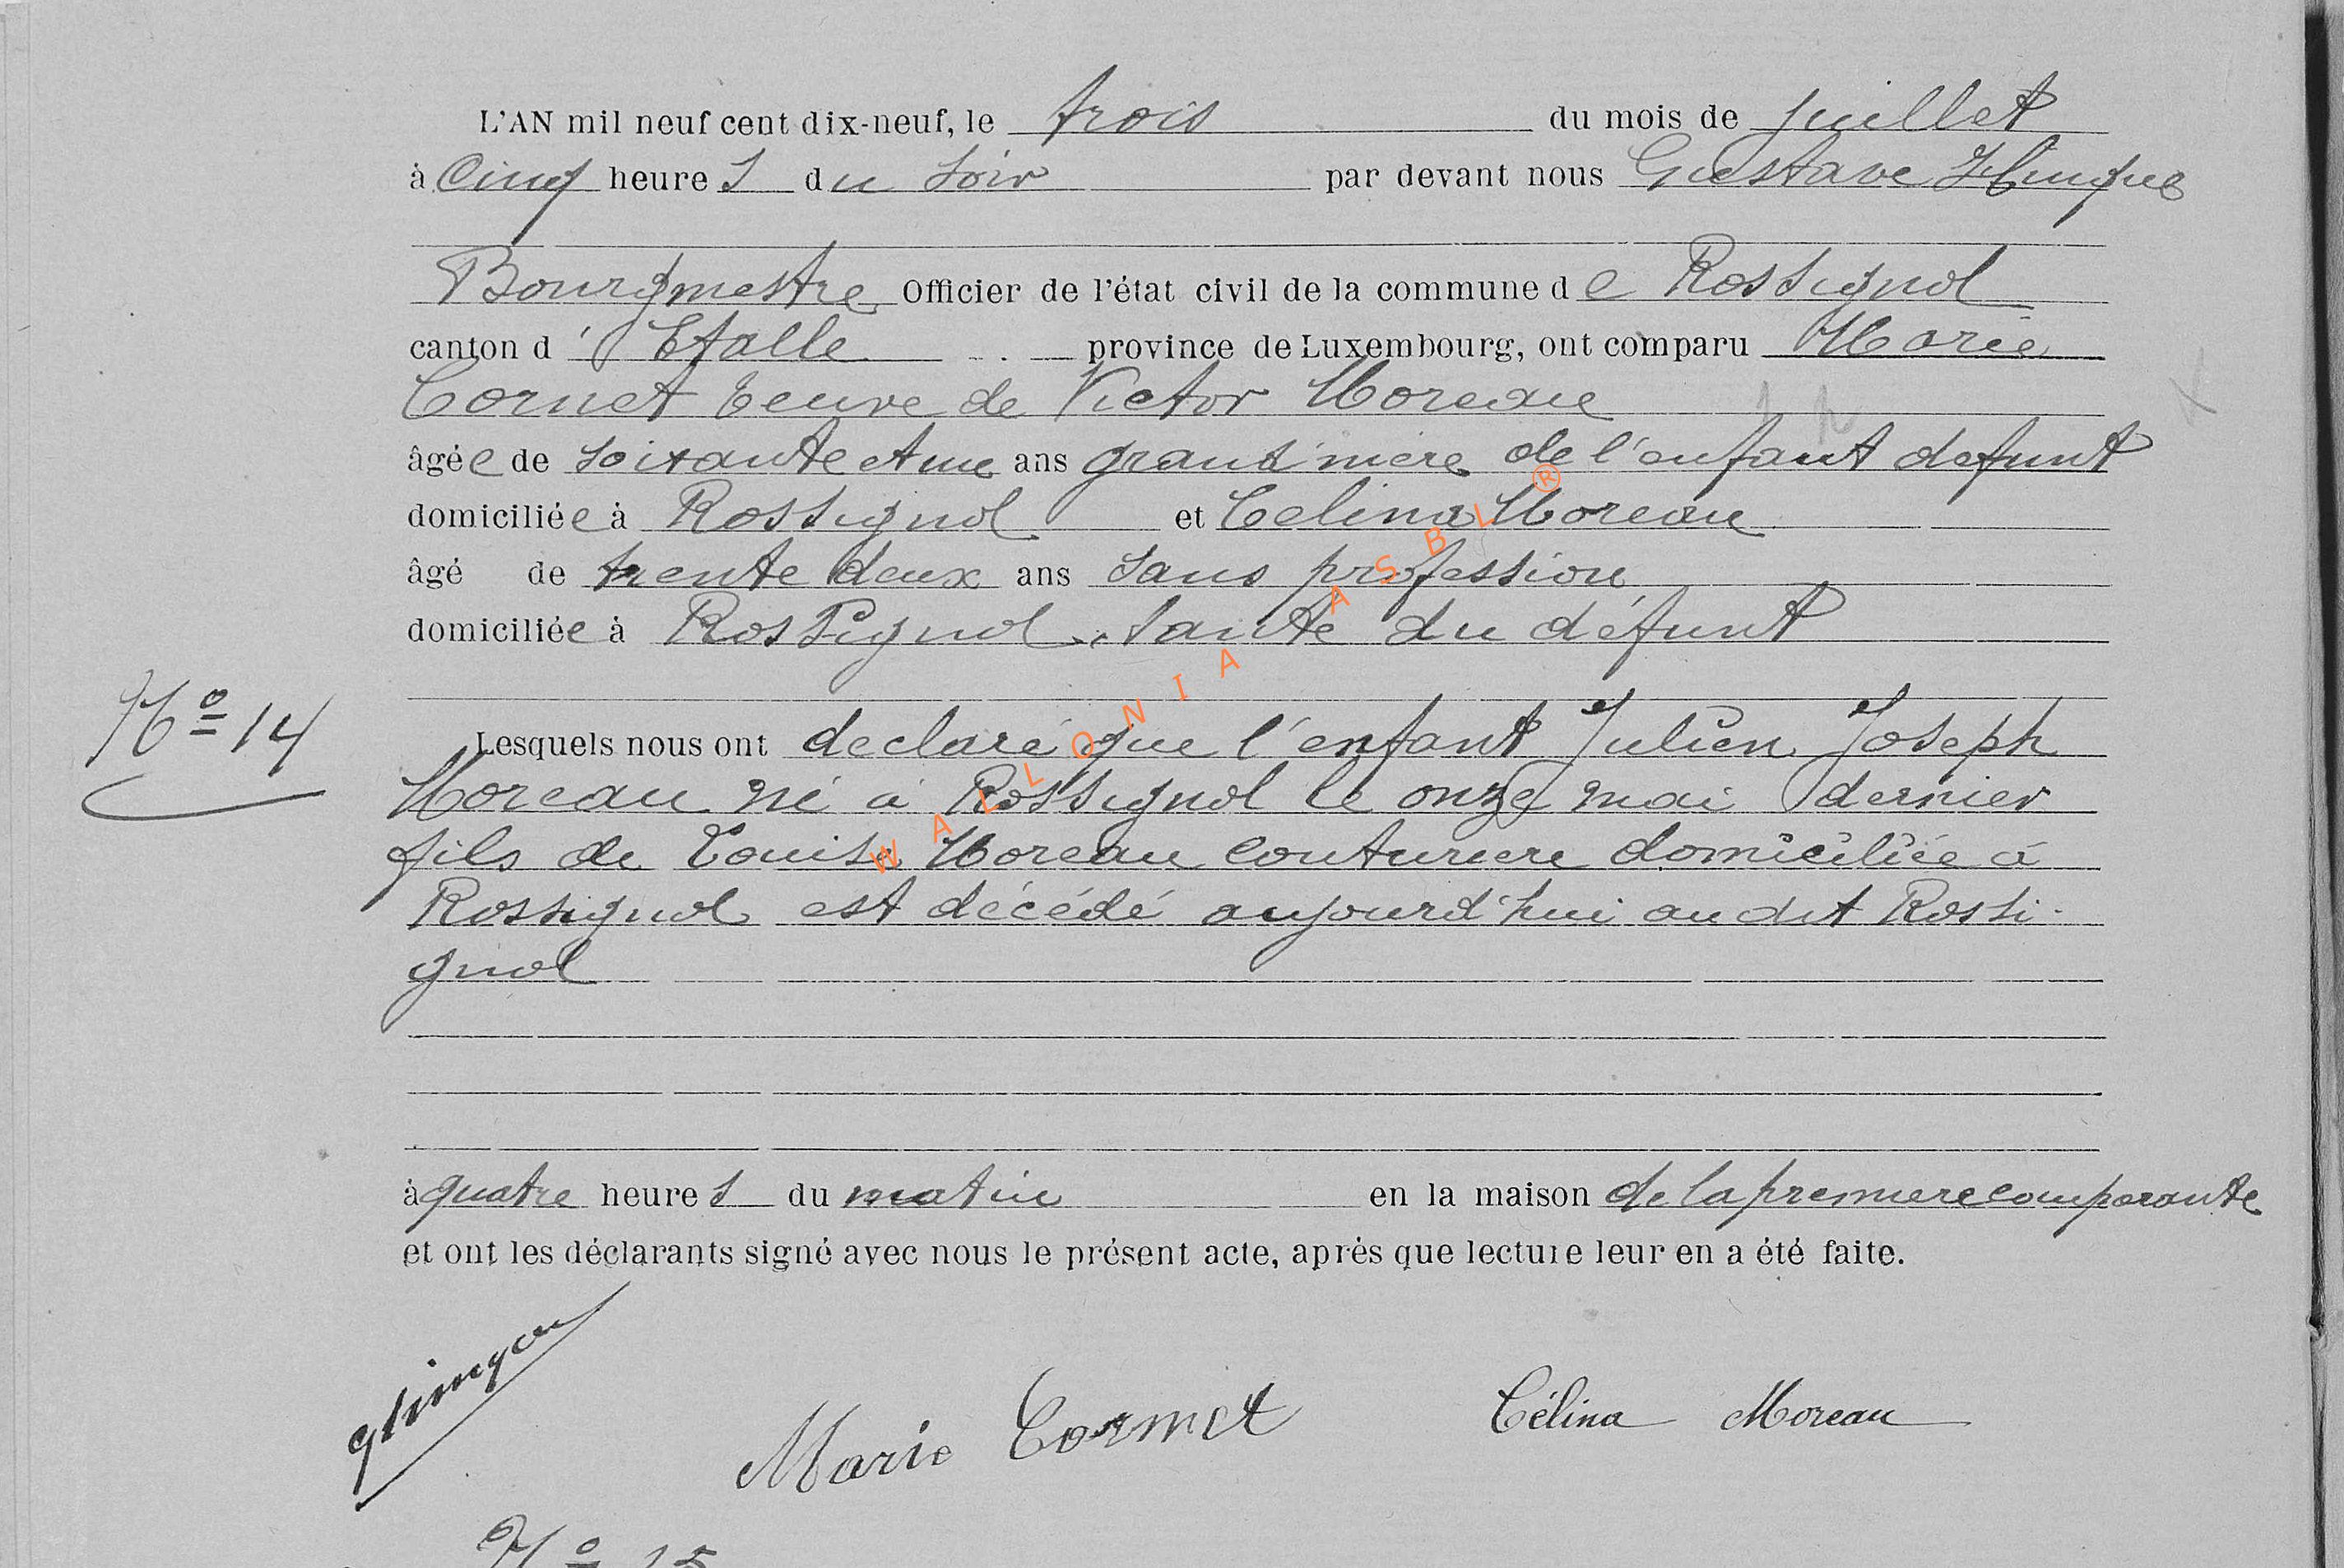 L'AN mil neuf cent dix-neuf, le trois du mois de juillet
à cinq heures du soir par devant nous Gustave
Bourgmestre Officier de l'état civil de la commune de Rossignol
canton d'Etalle province de Luxembourg, ont comparu Marie
Cornet veuve de Victor Moreau
âgée de soixante et une ans grand'mère de l'enfant defunt
domiciliée à Rossignol et Celina Moreau
âgé de trente deux ans sans profession
domiciliée à Rossignol, tante du défunt
No 14
Lesquels nous ont declaré que l'enfant Julien Joseph
Moreau né à Rossignol le onze mai dernier
fils de Louise Moreau couturiere domiciliée à
Rossignol est décédé aujourd'hui au dit Rossi-
gnol
à quatre heures du matin en la maison de la premiere comparante
et ont les déclarants signé avec nous le présent acte, après que lecture leur en a été faite.
Marie Cornet Célina Moreau
No 15
WALLONIA ASBL ®